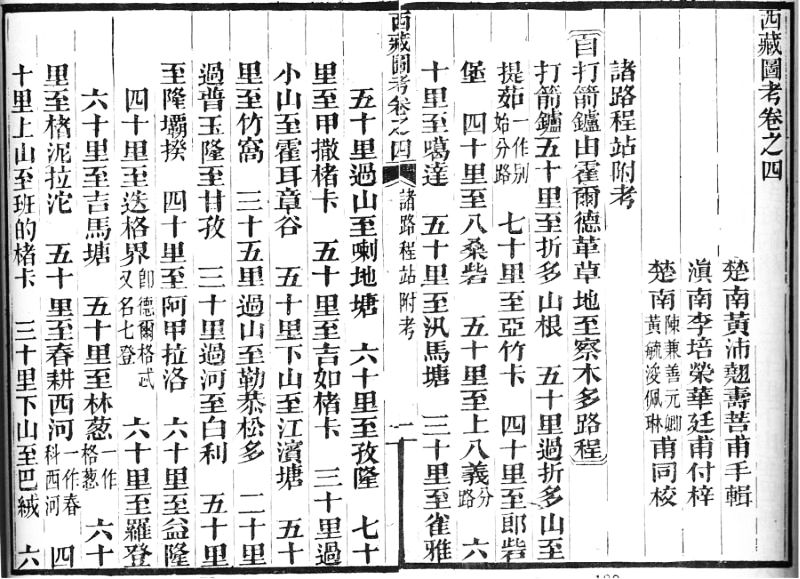 西藏圖考卷之四
楚南黃沛翹壽菩甫手輯
滇南李培榮華廷甫付梓
楚南陳兼善元卿黃毓浚佩琳甫同校
諸路程站附考
自打箭鑪由霍爾德革草地至察木多路程
打箭鑪五十里至折多山根 五十里過折多山至
提茹一作別始分路 七十里至亞竹卡 四十里至郎砦
堡 四十里至八桑砦 五十里至上八義分路 六
十里至噶達 五十里至汎馬塘 三十里至雀雅
西藏圖考卷之四 諸路程站附考 一
五十里過山至喇地塘 六十里至孜隆 七十
里至甲撒楮卡 五十里至吉如楮卡 三十里過
小山至霍耳章谷 五十里下山至江濱塘 五十
里至竹窩 三十五里過山至勒恭松多 二十里
過普玉隆至甘孜 三十里過河至白利 五十里
至隆壩揆 四十里至阿甲拉洛 六十里至益隆
四十里至迭格界卽德爾格忒又名七登 六十里至羅登
六十里至吉馬塘 五十里至林葱一作格葱 六十
里至楮泥拉沱 五十里至春耕西河一作春科西河 四
十里上山至班的楮卡 三十里下山至巴絨 六